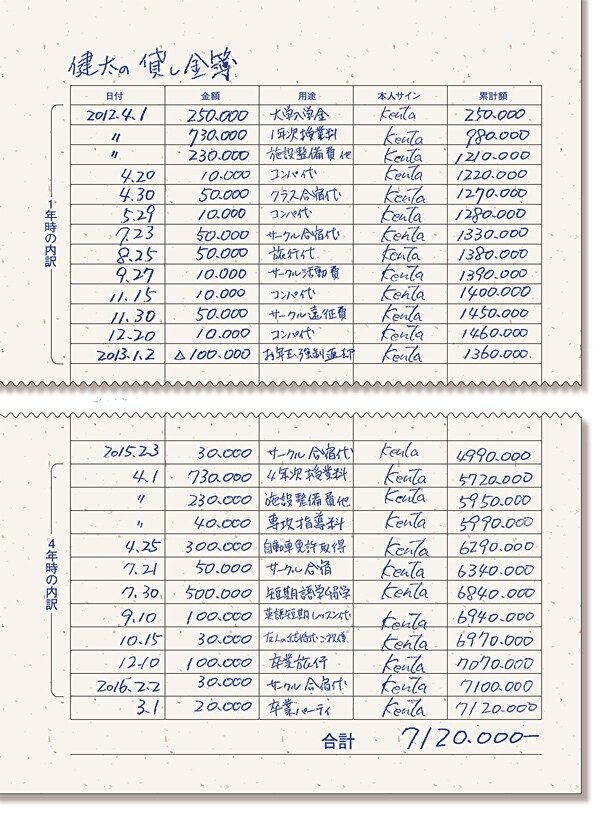 健太の貸し金簿
日付 金額 用途 本人サイン 累計額
1年時の内訳
2012.4.1 250.000 大学入学金 Kenta 250.000
〃 730.000 1年次授業料 Kenta 980.000
〃 230.000 施設整備費他 Kenta 1210.000
4.20 10.000 コンパ代 Kenta 1220.000
4.30 50.000 クラス合宿代 Kenta 1270.000
5.29 10.000 コンパ代 Kenta 1280.000
7.23 50.000 サークル合宿代 Kenta 1330.000
8.25 50.000 旅行代 Kenta 1380.000
9.27 10.000 サークル活動費 Kenta 1390.000
11.15 10.000 コンパ代 Kenta 1400.000
11.30 50.000 サークル遠征費 Kenta 1450.000
12.20 10.000 コンパ代 Kenta 1460.000
2013.1.2 △100.000 お年玉強制返却 Kenta 1360.000
2015.2.3 30.000 サークル合宿代 Kenta 4990.000
4年時の内訳
4.1 730.000 4年次授業料 Kenta 5720.000
〃 230.000 施設整備費他 Kenta 5950.000
〃 40.000 専攻指導料 Kenta 5990.000
4.25 300.000 自動車免許取得 Kenta 6290.000
7.21 50.000 サークル合宿 Kenta 6340.000
7.30 500.000 短期語学留学 Kenta 6840.000
9.10 100.000 英語短期レッスン代 Kenta 6940.000
10.15 30.000 友人の結婚式ご祝儀 Kenta 6970.000
12.10 100.000 卒業旅行 Kenta 7070.000
2016.2.2 30.000 サークル合宿代 Kenta 7100.000
3.1 20.000 卒業パーティ Kenta 7120.000
合計 7120.000-